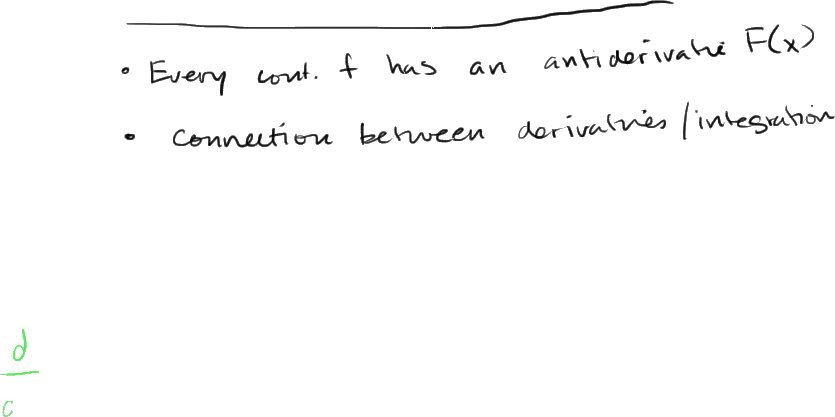 • Every cont. f has an antiderivative F(x)
• connection between derivatives/integration
d
c